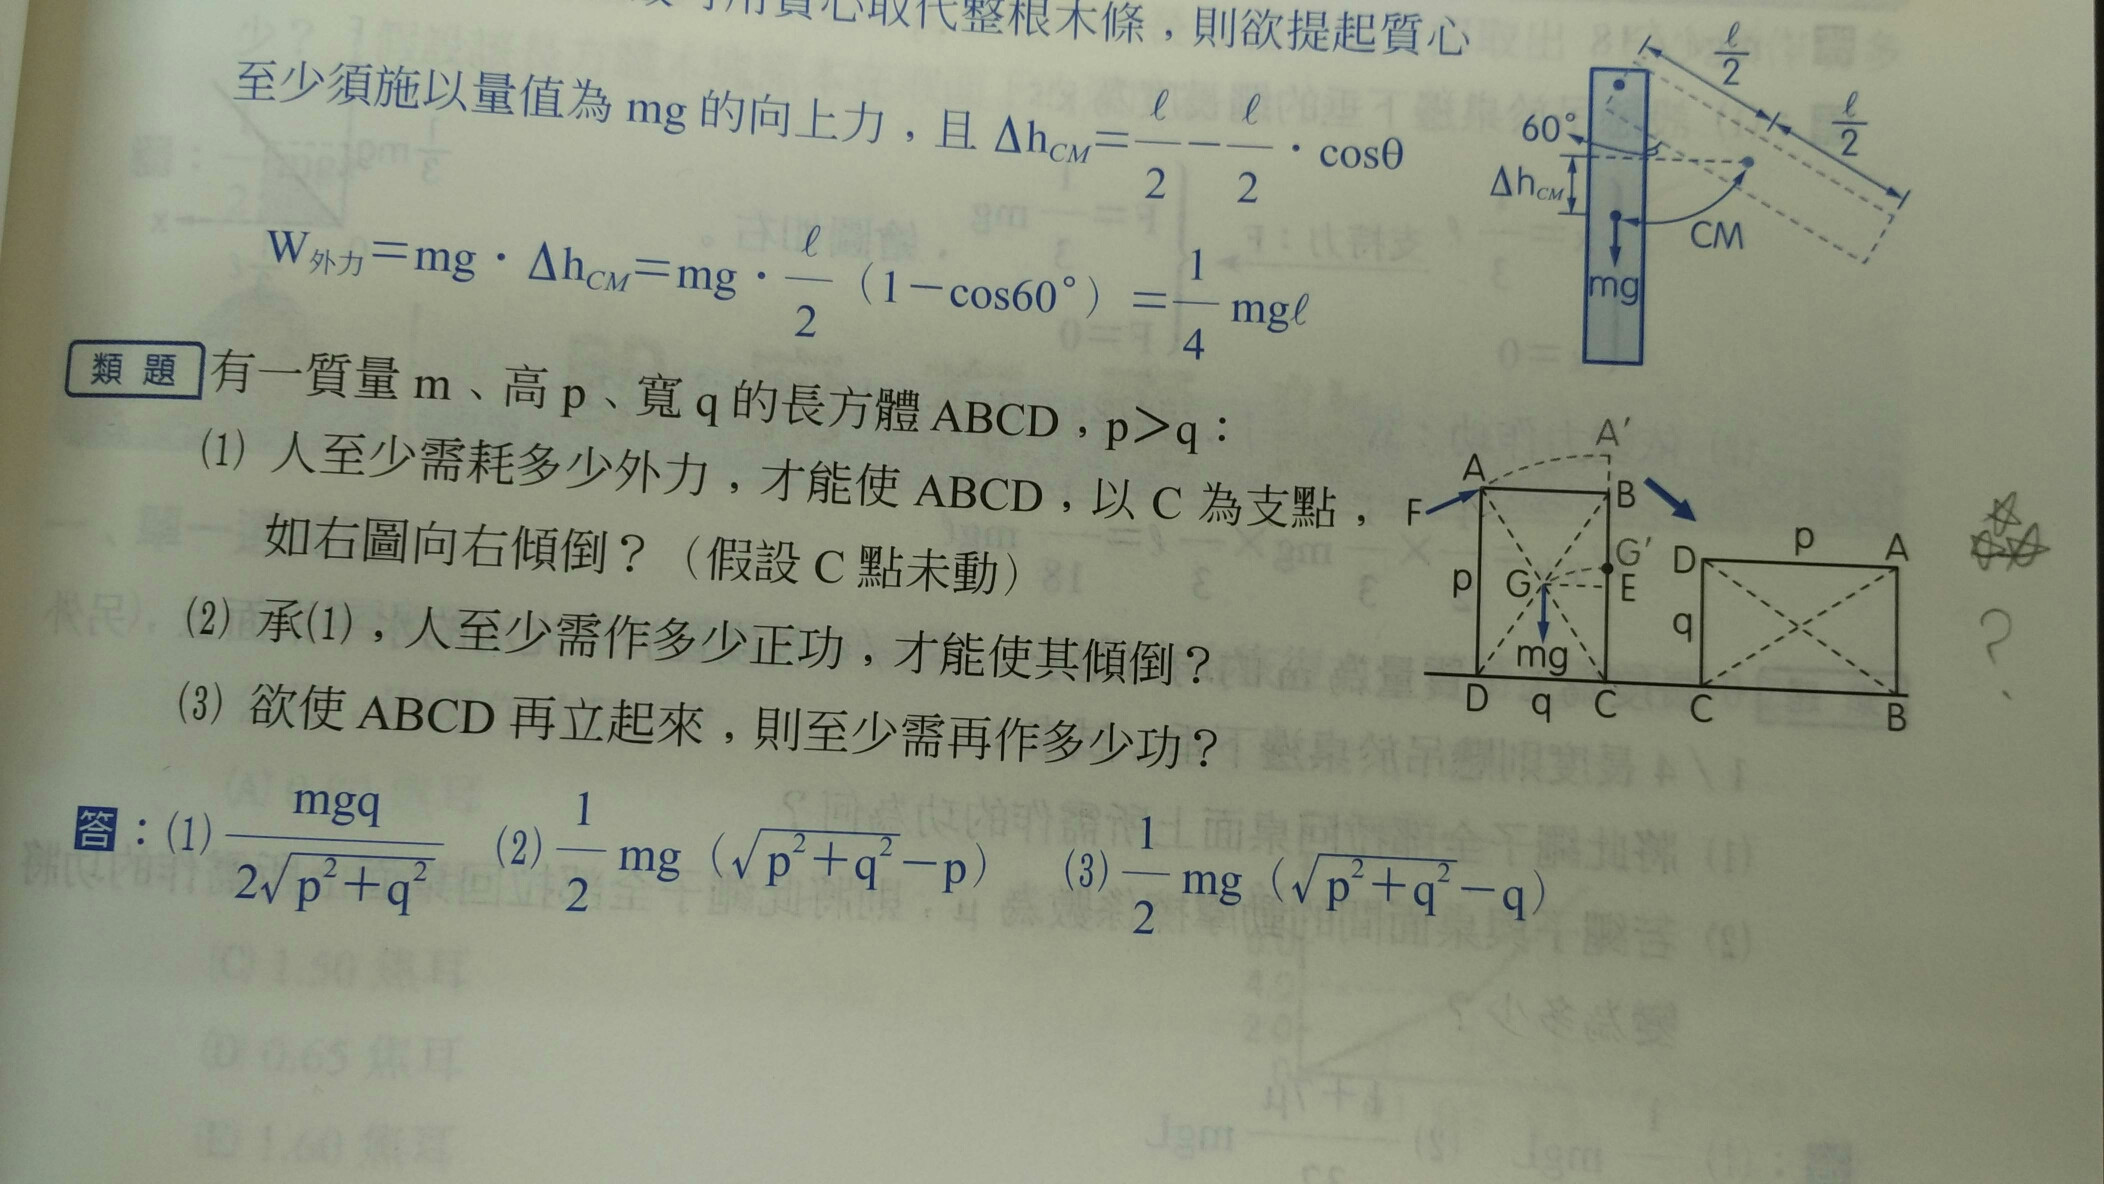 用質心取代整根木條，則欲提起質心
至少須施以量值為 mg 的向上力，且 Δh_CM＝ℓ/2－ℓ/2．cosθ
W外力＝mg．Δh_CM＝mg．ℓ/2（1－cos60°）＝1/4 mgℓ
ℓ/2
ℓ/2
60°
Δh_CM
CM
mg
類題 有一質量 m、高 p、寬 q 的長方體 ABCD，p＞q：
(1) 人至少需耗多少外力，才能使 ABCD，以 C 為支點，
如右圖向右傾倒？（假設 C 點未動）
(2) 承(1)，人至少需作多少正功，才能使其傾倒？
(3) 欲使 ABCD 再立起來，則至少需再作多少功？
A′
A
B
F
G′
p
G
E
mg
D
q
C
D
p
A
q
C
B
?
答：(1) mgq/2√(p²＋q²) (2) 1/2 mg（√(p²＋q²)－p） (3) 1/2 mg（√(p²＋q²)－q）